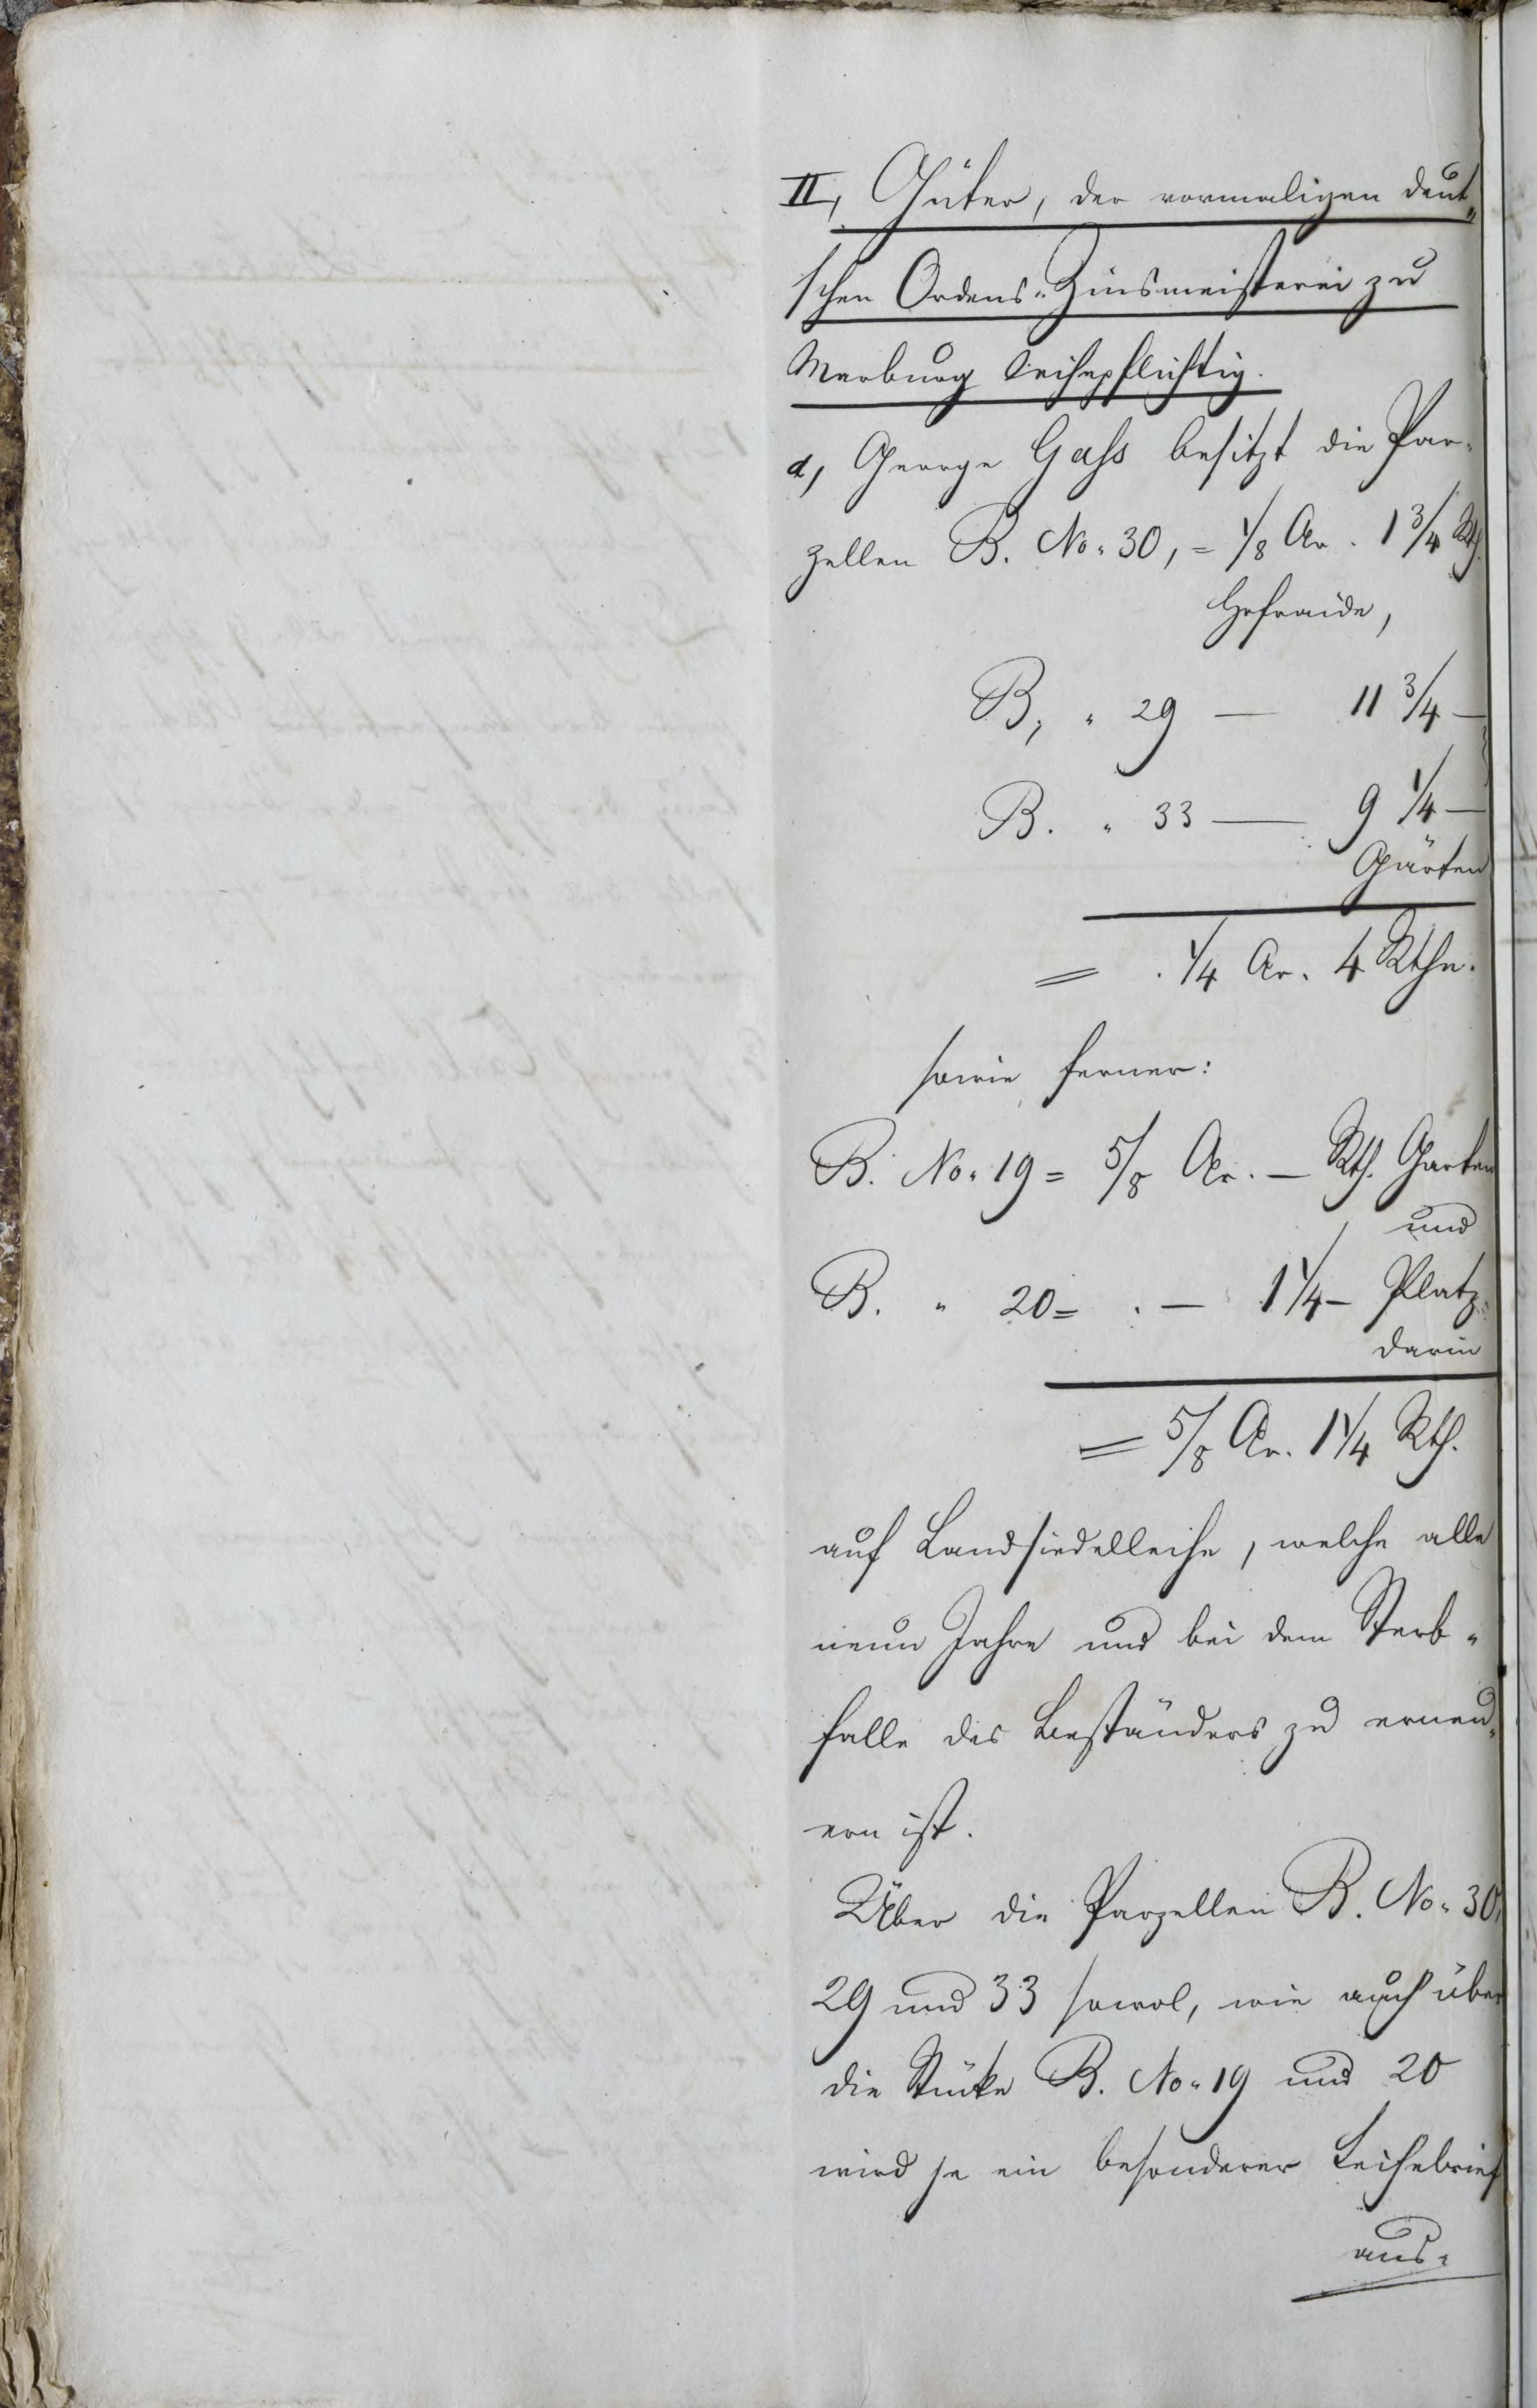 II, Güter, der vormaligen deut„
schen Ordens-Zinsmeisterei zu
Marburg leihepflichtig.
a, George Gaß besitzt die Par-
zellen B. No. 30, = 1/8 Ar. 1 3/4 Rth.
Hofraide,
B, " 29 — 11 3/4 —
B. " 33 — 9 1/4 —
Gärten
= . 1/4 Ar. 4 Rthn.
sowie ferner:
B. No. 19 = 5/8 Ar. — Rth. Garten
und
B. " 20 = . — 1 1/4 — Platz
darin
= 5/8 Ar. 1 1/4 Rth.
auf Landsiedelleihe, welche alle
neun Jahre und bei dem Sterb-
falle des Beständers zu erneu-
ern ist.
Über die Parzellen B. No. 30,
29 und 33 sowol, wie auch über
die Stücke B. No. 19 und 20
wird je ein besonderer Leihebrief
aus-